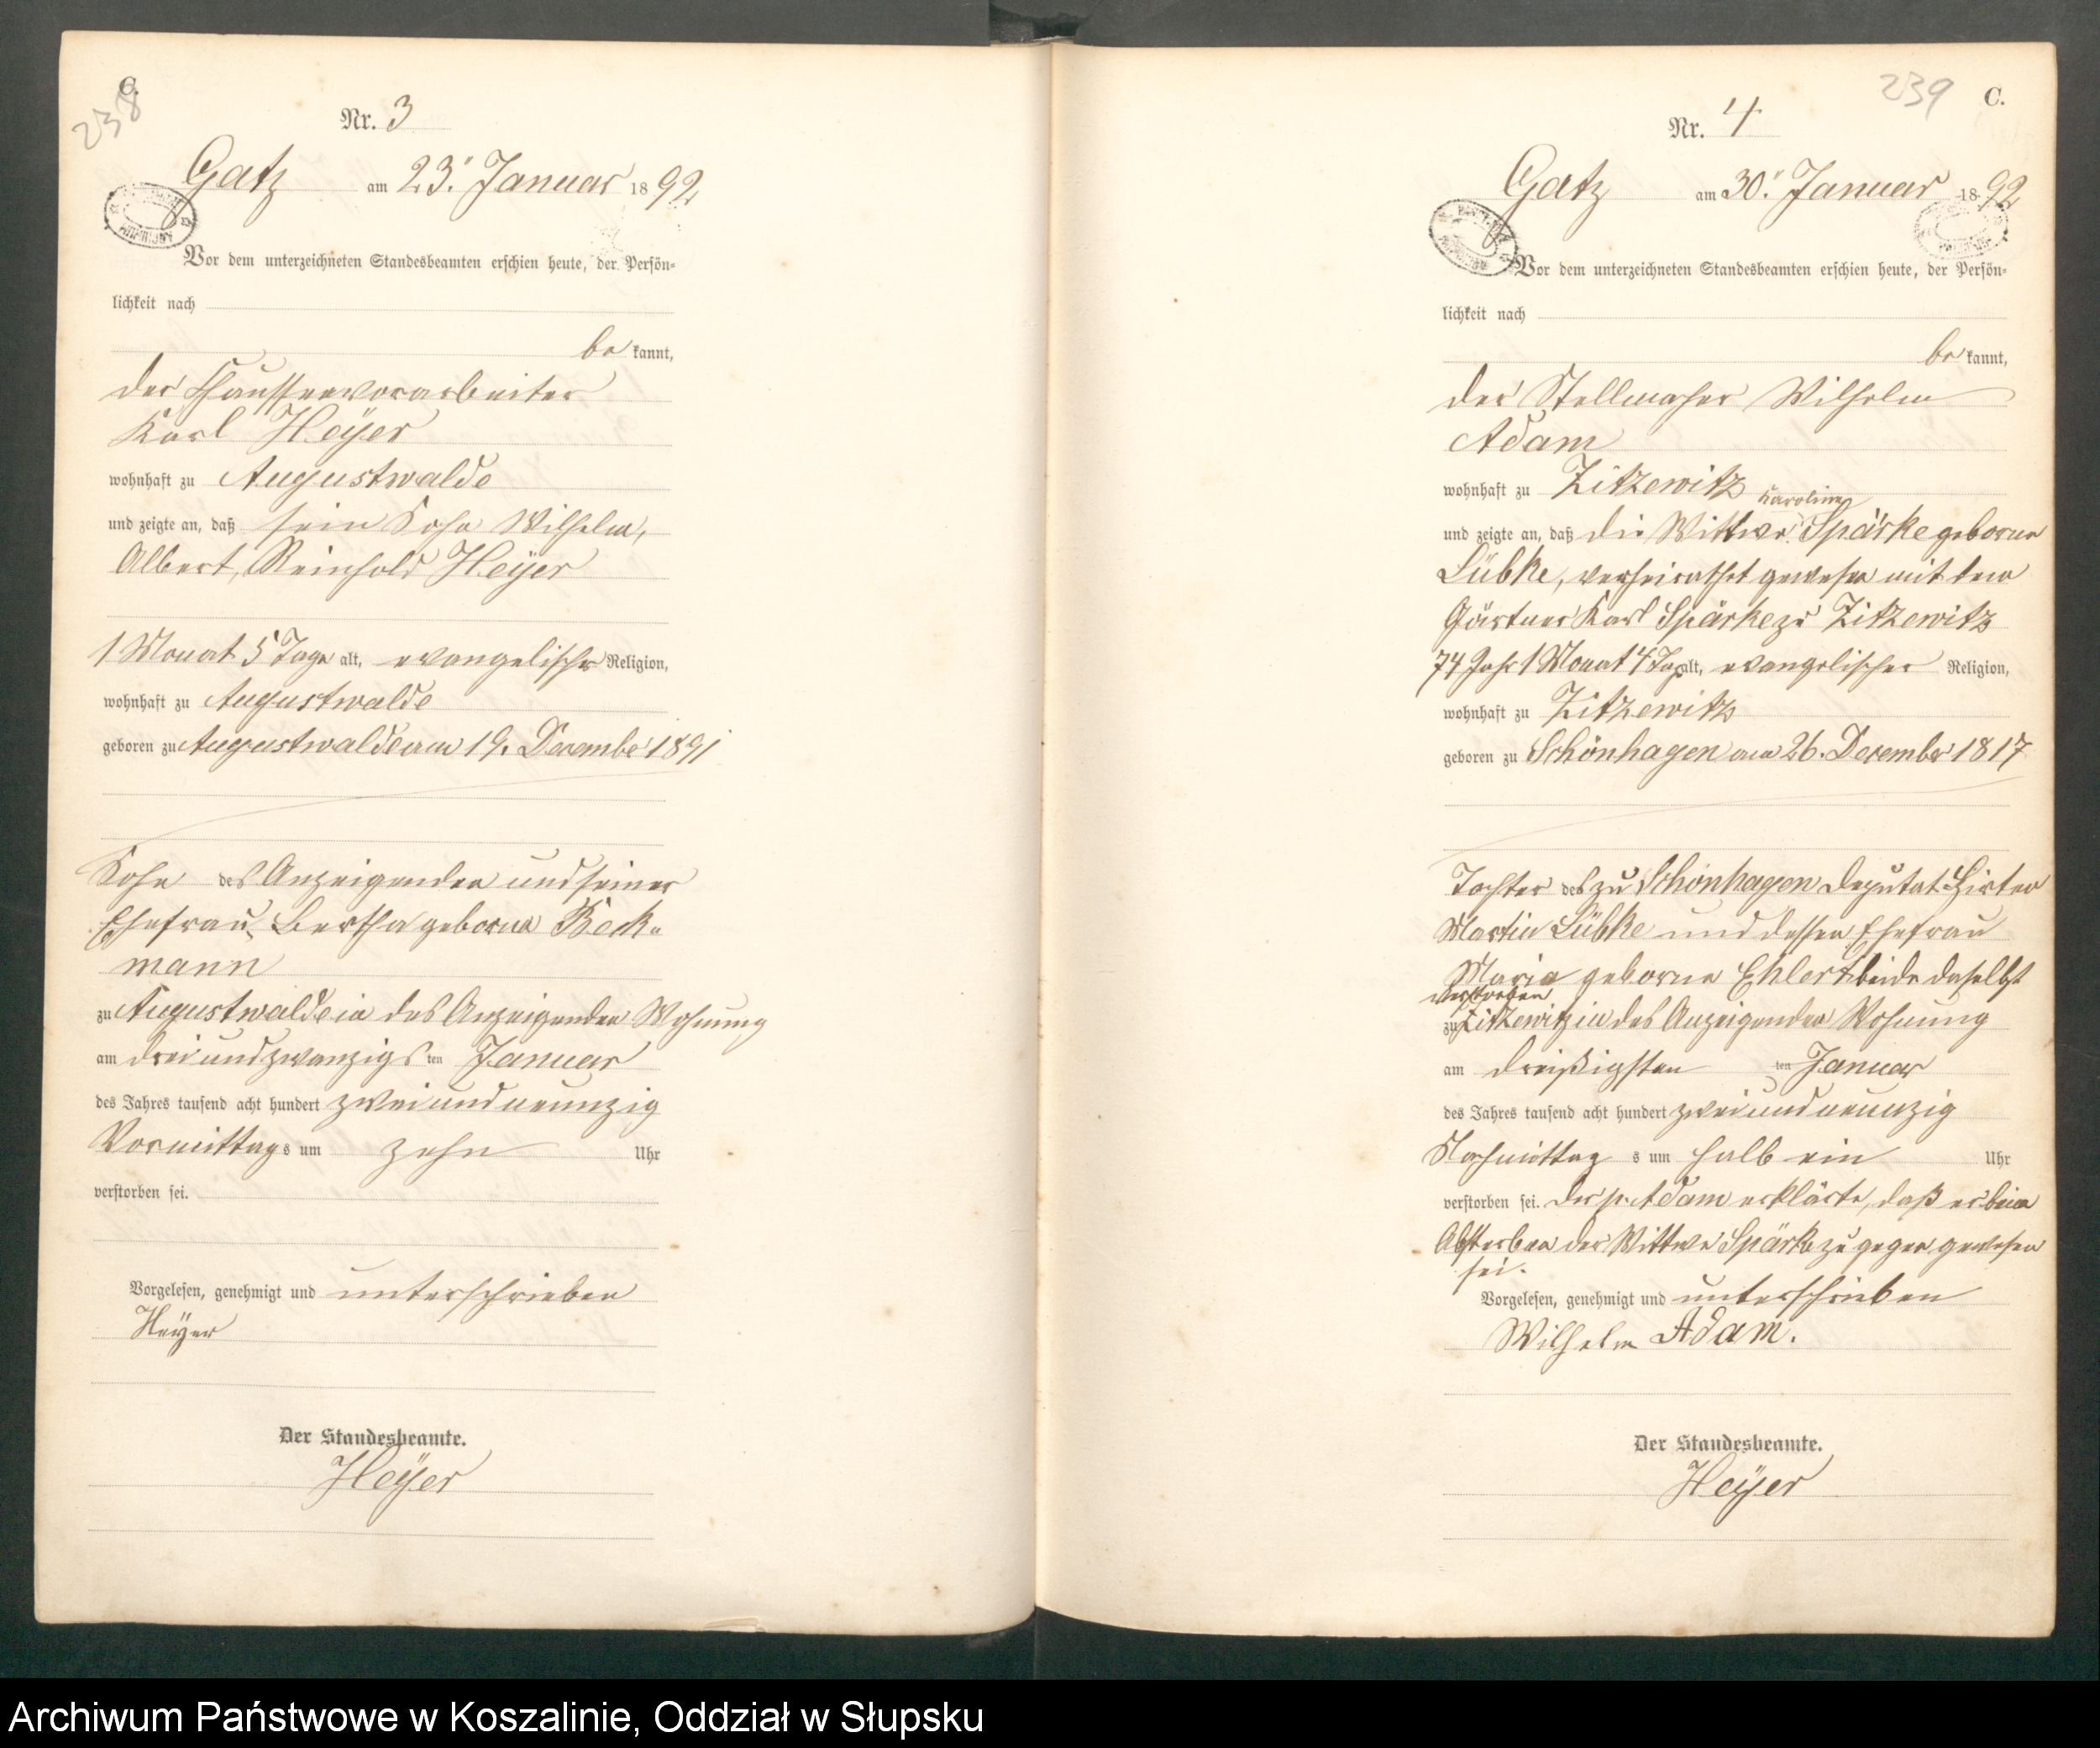 C.
238
Nr. 3
Gatz am 23. Januar 1892
Vor dem unterzeichneten Standesbeamten erschien heute, der Persön-
lichkeit nach
be kannt,
der Chausseevorarbeiter
Karl Heÿer
wohnhaft zu Augustwalde
und zeigte an, daß sein Sohn Wilhelm,
Albert, Reinhold Heÿer
1 Monat 5 Tage alt, evangelischer Religion,
wohnhaft zu Augustwalde
geboren zu Augustwalde am 19. Dezember 1891
Sohn des Anzeigenden und seiner
Ehefrau Bertha geborne Beck-
mann
zu Augustwalde in des Anzeigenden Wohnung
am dreiundzwanzigs ten Januar
des Jahres tausend acht hundert zweiundneunzig
Vormittags um zehn Uhr
verstorben sei.
Vorgelesen, genehmigt und unterschrieben
Heÿer
Der Standesbeamte.
Heÿer
239 C.
Nr. 4
Gatz am 30. Januar 1892
Vor dem unterzeichneten Standesbeamten erschien heute, der Persön-
lichkeit nach
be kannt,
der Stellmacher Wilhelm
Adam
wohnhaft zu Zitzewitz
Karoline
und zeigte an, daß die Wittwe Spärke geborne
Lübke, verheirathet gewesen mit dem
Gärtner Karl Spärke zu Zitzewitz
74 Jahr 1 Monat 4 Tage alt, evangelischer Religion,
wohnhaft zu Zitzewitz
geboren zu Schönhagen am 26. Dezember 1817
Tochter des zu Schönhagen Deputat Hirten
Martin Lübke und dessen Ehefrau
Maria geborne Ehlert beide daselbst
verstorben
zu Zitzewitz in des Anzeigenden Wohnung
am dreißigsten ten Januar
des Jahres tausend acht hundert zweiundneunzig
Nachmittag s um halb ein Uhr
verstorben sei. Der p. Adam erklärte, daß er beim
Absterben der Wittwe Spärke zugegen gewesen
sei.
Vorgelesen, genehmigt und unterschrieben
Wilhelm Adam.
Der Standesbeamte.
Heÿer
Archiwum Państwowe w Koszalinie, Oddział w Słupsku